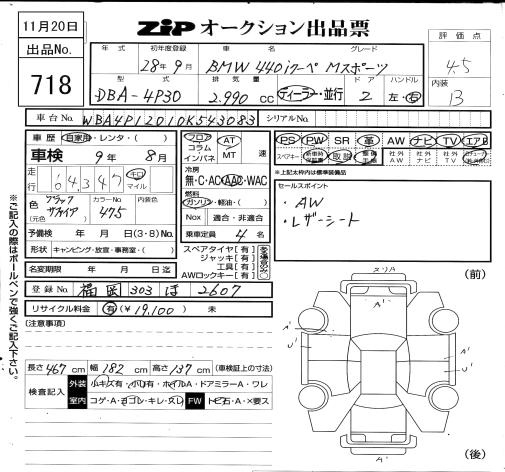 11月20日
出品No.
718
ZIP オークション出品票
評価点
4.5
内装
B
年式 初年度登録 車名 グレード
28年9月 BMW 440iクーペ Mスポーツ
型式 排気量 ドア ハンドル
DBA-4P30 2.990 cc ディーラー・並行 2 左・右
車台No. WBA4P12010K543083 シリアルNo.
車歴 自家用・レンタ・( )
車検 9年 8月
走行 64,347 キロ マイル
色 (元色) ブラックサファイア カラーNo. 475 内装色
予備検 年 月 日(3・8)No.
形状 キャンピング・放宣・事務室・( )
名変期限 年 月 日迄
フロア コラム インパネ AT MT 速
冷房 無・C・AC・AAC・WAC
燃料 ガソリン・軽油・( )
Nox 適合・非適合
乗車定員 4 名
スペアタイヤ【有】
ジャッキ【有】
工具【有】
AWロックキー【有】
PS PW SR 革 AW ナビ TV エアB
スペアキー 取説 社外AW 社外ナビ 社外TV
*上記太枠内は標準装備品
セールスポイント
・AW
・レザーシート
登録No. 福岡 303 ほ 2607
リサイクル料金 有(¥19,100) 未
(注意事項)
長さ 467 cm 幅 182 cm 高さ 137 cm (車検証上の寸法)
検査記入 外装 小キズ有・小凹有・ホイルA・ドアミラーA・ワレ
室内 コゲ・A・ヨゴレ・キレ・スレ FW トビ石・A・×要ス
※ご記入の際はボールペンで強くご記入下さい。
(前)
スリA
A'
A'
U'
U'
A'
(後)